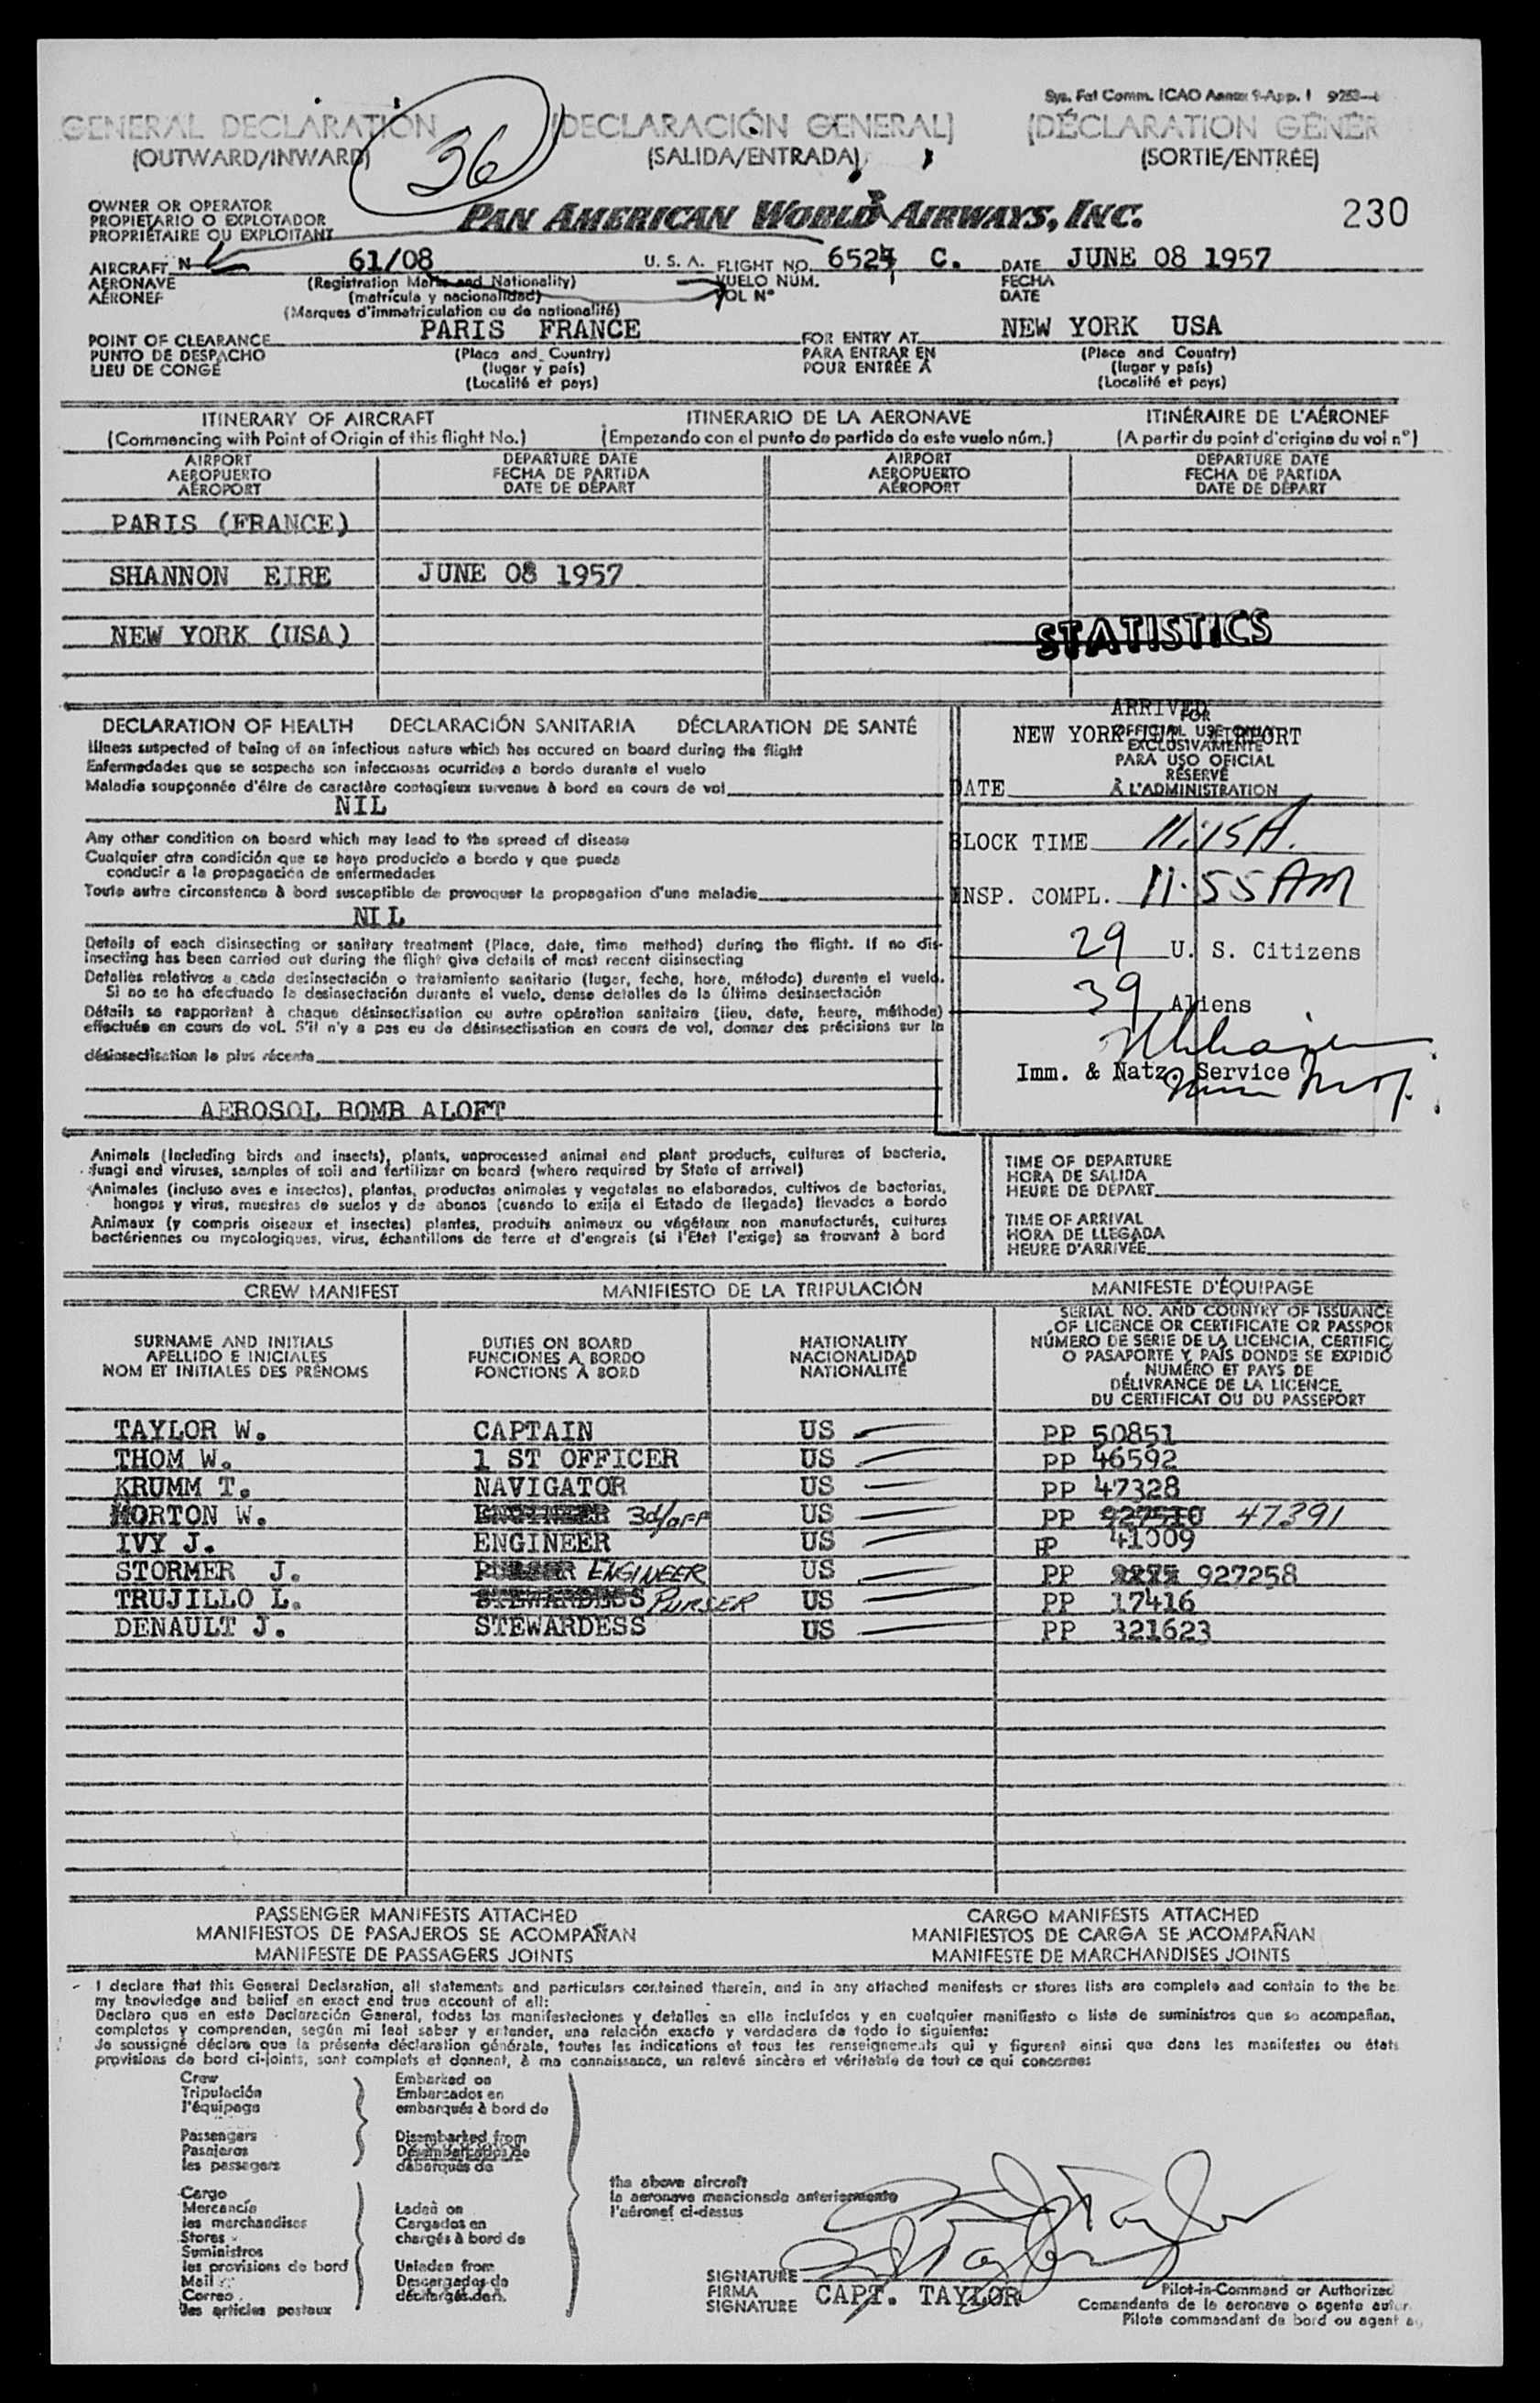 Sys. Fat Comm. ICAO Annex 9-App. I
GENERAL DECLARATION (DECLARACIÓN GENERAL) (DÉCLARATION GÉNÉR
(OUTWARD/INWARD) (SALIDA/ENTRADA) (SORTIE/ENTRÉE)
36
OWNER OR OPERATOR
PROPIETARIO O EXPLOTADOR
PROPRIÉTAIRE OU EXPLOITANT
PAN AMERICAN WORLD AIRWAYS, INC. 230
AIRCRAFT N 61/08 U. S. A. FLIGHT NO. C. DATE JUNE 08 1957
AERONAVE (Registration Marks and Nationality) VUELO NÚM. FECHA
AÉRONEF (matrícula y nacionalidad) VOL Nº DATE
(Marques d'immatriculation ou de nationalité)
POINT OF CLEARANCE PARIS FRANCE FOR ENTRY AT NEW YORK USA
PUNTO DE DESPACHO (Place and Country) PARA ENTRAR EN (Place and Country)
LIEU DE CONGÉ (lugar y país) POUR ENTRÉE À (lugar y país)
(Localité et pays) (Localité et pays)
ITINERARY OF AIRCRAFT ITINERARIO DE LA AERONAVE ITINÉRAIRE DE L'AÉRONEF
(Commencing with Point of Origin of this flight No.) (Empezando con el punto de partida de este vuelo núm.) (A partir du point d'origine du vol nº)
AIRPORT DEPARTURE DATE AIRPORT DEPARTURE DATE
AEROPUERTO FECHA DE PARTIDA AEROPUERTO FECHA DE PARTIDA
AÉROPORT DATE DE DÉPART AÉROPORT DATE DE DÉPART
PARIS (FRANCE)
SHANNON EIRE JUNE 08 1957
NEW YORK (USA)
STATISTICS
DECLARATION OF HEALTH DECLARACIÓN SANITARIA DÉCLARATION DE SANTÉ
Illness suspected of being of an infectious nature which has occured on board during the flight
Enfermedades que se sospecha son infecciosas ocurridas a bordo durante el vuelo
Maladie soupçonnée d'être de caractère contagieux survenue à bord en cours de vol
NIL
Any other condition on board which may lead to the spread of disease
Cualquier otra condición que se haya producido a bordo y que pueda
conducir a la propagación de enfermedades
Toute autre circonstance à bord susceptible de provoquer la propagation d'une maladie
NIL
Details of each disinsecting or sanitary treatment (Place, date, time method) during the flight. If no dis-
insecting has been carried out during the flight give details of most recent disinsecting
Detalles relativos a cada desinsectación o tratamiento sanitario (lugar, fecha, hora, método) durante el vuelo.
Si no se ha efectuado la desinsectación durante el vuelo, dense detalles de la última desinsectación
Détails se rapportant à chaque désinsectisation ou autre opération sanitaire (lieu, date, heure, méthode)
effectuée en cours de vol. S'il n'y a pas eu de désinsectisation en cours de vol, donner des précisions sur la
désinsectisation la plus récente
AEROSOL BOMB ALOFT
ARRIVED
FOR
NEW YORK AIRPORT
OFFICIAL USE ONLY
EXCLUSIVAMENTE
PARA USO OFICIAL
RÉSERVÉ
À L'ADMINISTRATION
DATE
BLOCK TIME 11:15A.
INSP. COMPL. 11:55 AM
29 U. S. Citizens
39 Aliens
Imm. & Natz. Service
Animals (Including birds and insects), plants, unprocessed animal and plant products, cultures of bacteria,
fungi and viruses, samples of soil and fertilizer on board (where required by State of arrival)
Animales (incluso aves e insectos), plantas, productos animales y vegetales no elaborados, cultivos de bacterias,
hongos y virus, muestras de suelos y de abonos (cuando lo exija el Estado de llegada) llevados a bordo
Animaux (y compris oiseaux et insectes) plantes, produits animaux ou végétaux non manufacturés, cultures
bactériennes ou mycologiques, virus, échantillons de terre et d'engrais (si l'Etat l'exige) se trouvant à bord
TIME OF DEPARTURE
HORA DE SALIDA
HEURE DE DÉPART
TIME OF ARRIVAL
HORA DE LLEGADA
HEURE D'ARRIVÉE
CREW MANIFEST MANIFIESTO DE LA TRIPULACIÓN MANIFESTE D'ÉQUIPAGE
SURNAME AND INITIALS
APELLIDO E INICIALES
NOM ET INITIALES DES PRÉNOMS
DUTIES ON BOARD
FUNCIONES A BORDO
FONCTIONS À BORD
NATIONALITY
NACIONALIDAD
NATIONALITÉ
SERIAL NO. AND COUNTRY OF ISSUANCE
OF LICENCE OR CERTIFICATE OR PASSPOR
NÚMERO DE SERIE DE LA LICENCIA, CERTIFIC
O PASAPORTE Y PAÍS DONDE SE EXPIDIÓ
NUMÉRO ET PAYS DE
DÉLIVRANCE DE LA LICENCE,
DU CERTIFICAT OU DU PASSEPORT
TAYLOR W. CAPTAIN US PP 50851
THOM W. 1 ST OFFICER US PP 46592
KRUMM T. NAVIGATOR US PP 47328
HORTON W. 3d/OFF US PP 47391
IVY J. ENGINEER US PP 41009
STORMER J. ENGINEER US PP 927258
TRUJILLO L. PURSER US PP 17416
DENAULT J. STEWARDESS US PP 321623
PASSENGER MANIFESTS ATTACHED CARGO MANIFESTS ATTACHED
MANIFIESTOS DE PASAJEROS SE ACOMPAÑAN MANIFIESTOS DE CARGA SE ACOMPAÑAN
MANIFESTE DE PASSAGERS JOINTS MANIFESTE DE MARCHANDISES JOINTS
I declare that this General Declaration, all statements and particulars contained therein, and in any attached manifests or stores lists are complete and contain to the be
my knowledge and belief an exact and true account of all:
Declaro que en esta Declaración General, todas las manifestaciones y detalles en ella incluídos y en cualquier manifiesto o lista de suministros que se acompañan,
completos y comprenden, según mi leal saber y entender, una relación exacta y verdadera de todo lo siguiente:
Je soussigné déclare que la présente déclaration générale, toutes les indications et tous les renseignements qui y figurent ainsi que dans les manifestes ou états
provisions de bord ci-joints, sont complets et donnent, à ma connaissance, un relevé sincère et véritable de tout ce qui concernes
Crew Embarked on
Tripulación Embarcados en
l'équipage embarqués à bord de
Passengers Disembarked from
Pasajeros Desembarcados de
les passagers débarqués de
the above aircraft
la aeronave mencionada anteriormente
l'aéronef ci-dessus
Cargo
Mercancía Laden on
les marchandises Cargados en
Stores chargés à bord de
Suministros
les provisions de bord Unladen from
Mail Descargados de
Correo déchargés de
les articles postaux
SIGNATURE
FIRMA CAPT. TAYLOR
SIGNATURE
Pilot-in-Command or Authorized
Comandante de la aeronave o agente autor
Pilote commandant de bord ou agent a